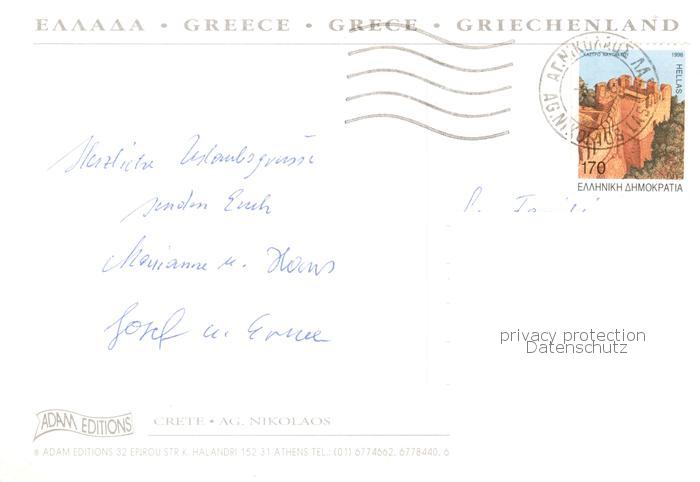 ΕΛΛΑΔΑ • GREECE • GRECE • GRIECHENLAND
ΑΓ.ΝΙΚΟΛΑΟΣ ΛΑΣ
AG.NIKOLAOS LAS
1998
HELLAS
170
ΕΛΛΗΝΙΚΗ ΔΗΜΟΚΡΑΤΙΑ
Herzliche Urlaubsgrüsse
senden Euch
Marianne u. Hans
Josef u. Erna
privacy protection
Datenschutz
ADAM EDITIONS
CRETE • AG. NIKOLAOS
ADAM EDITIONS 32 EPIROU STR K. HALANDRI 152 31 ATHENS TEL.: (01) 6774662, 6778440, 6